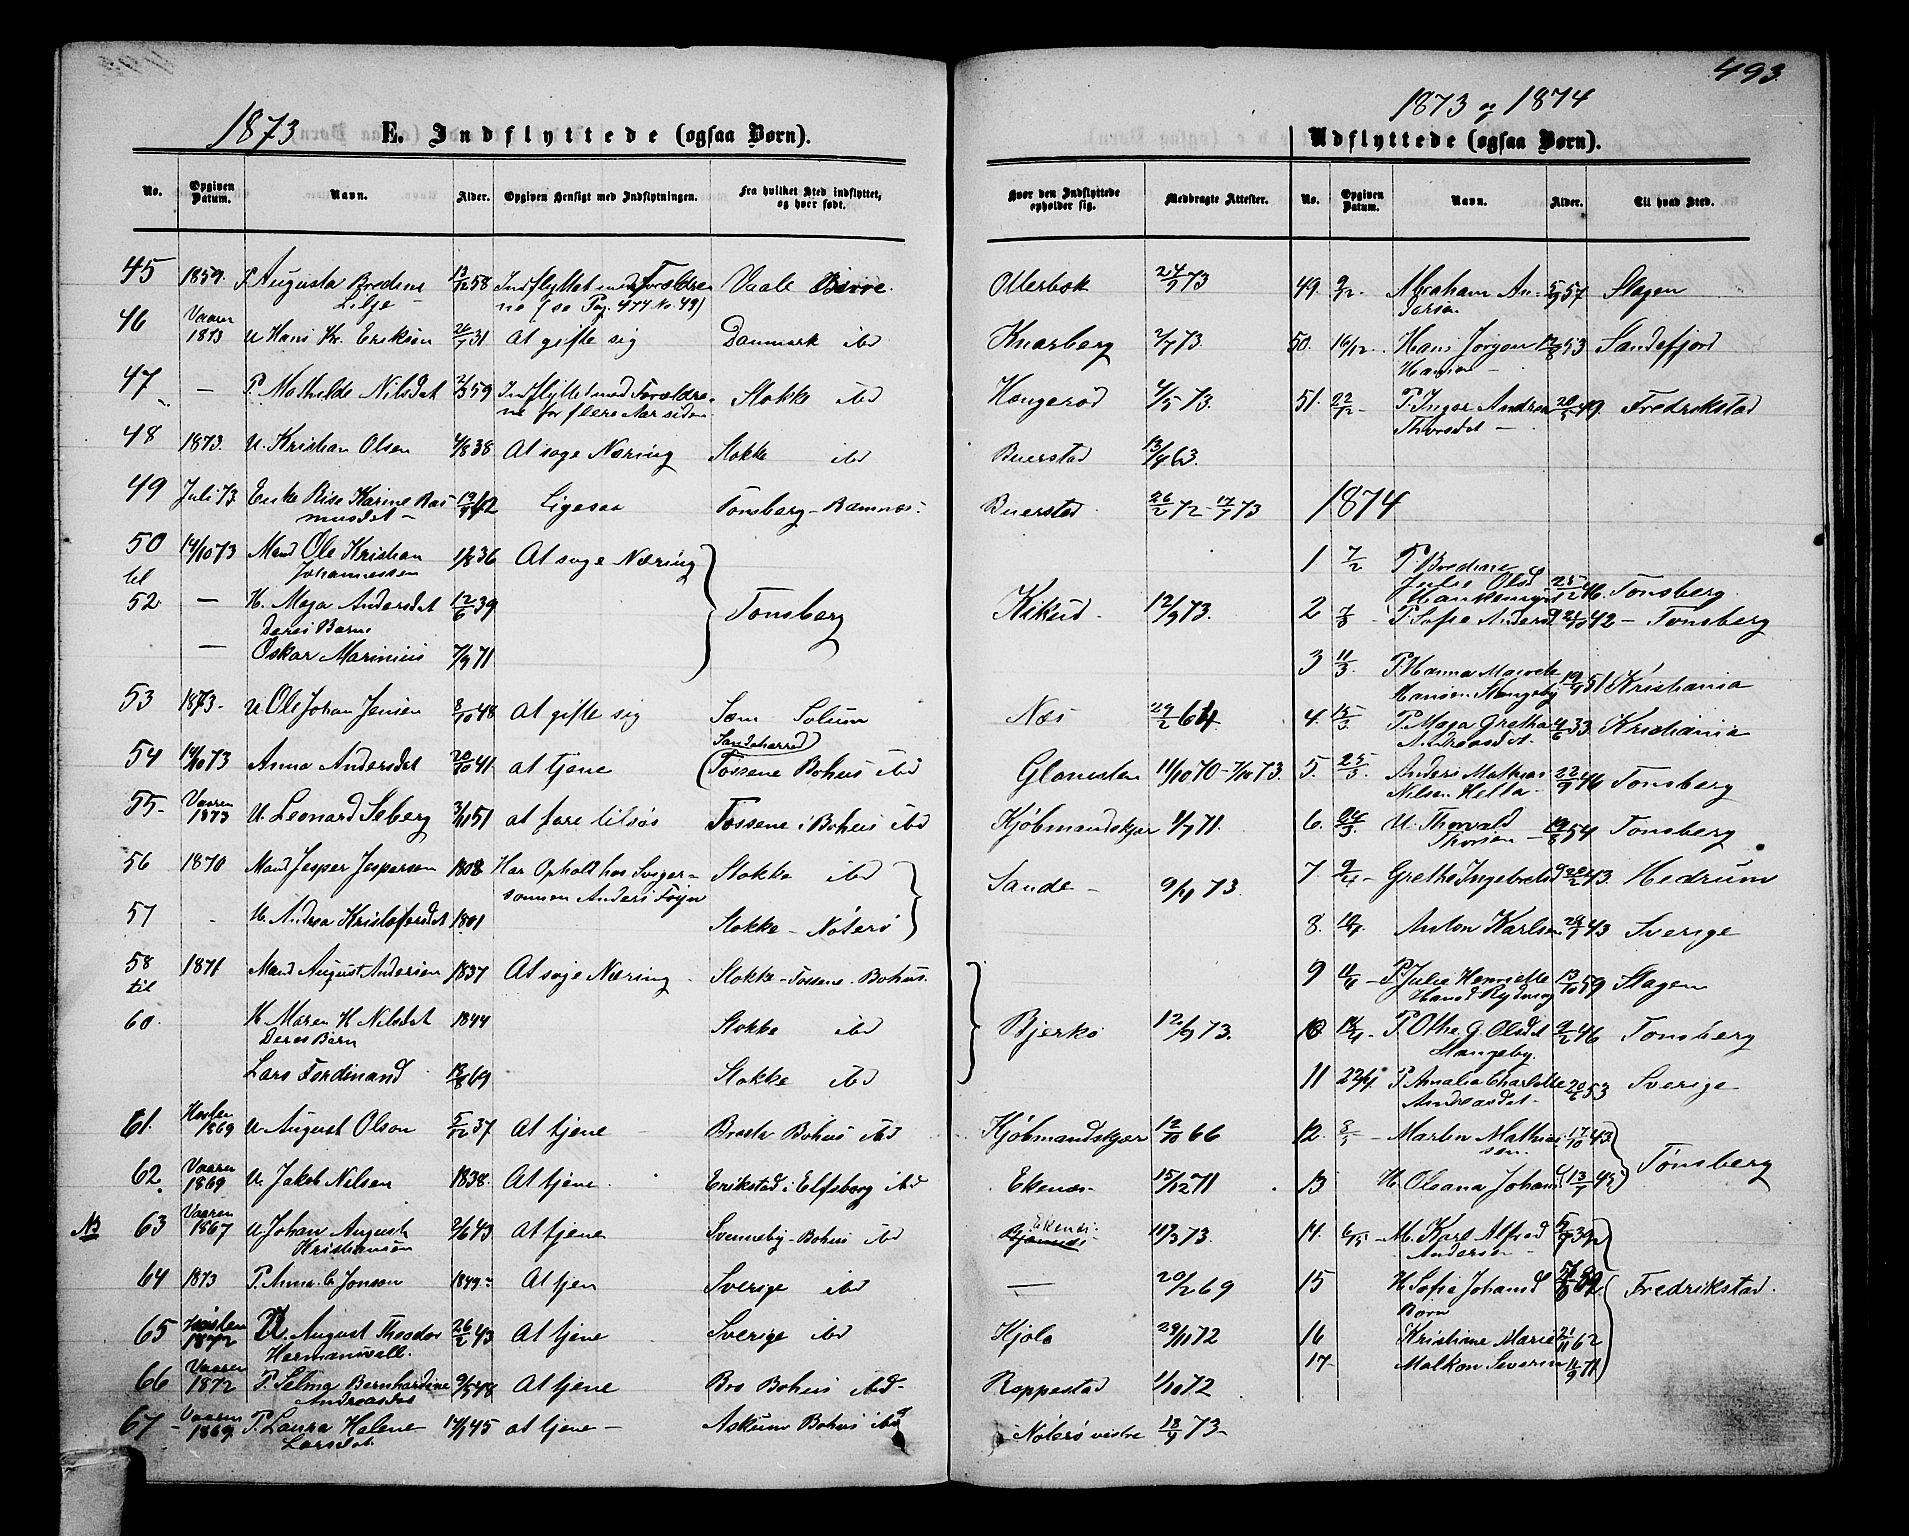 493.
1873 E. Indflyttede (ogsaa Børn).
1873 og 1874
Udflyttede (ogsaa Børn).
No. Opgiven Datum. Navn. Alder. Opgiven Hensigt med Indflytningen. Fra hvilket Sted indflyttet, og hvor født.
Hvor den Indflyttede opholder sig. Medbragte Attester. No. Opgiven Datum. Navn. Alder. Til hvad Sted.
45 1859. P. Augusta Bredine 13/12 58 Indflyttet med Forældre Vaale Borre.
Lilje ne (se Pag. 477 No 49)
46 Vaaren 1873 U Hans Kr. Eriksen 26/1 31 At gifte sig Danmark ibd
47 — P. Mathilde Nilsdat 2/3 59 Indflyttet med Forældre- Stokke ibd
ne for flere Aar siden
48 1873. U. Kristian Olsen 4/8 38 At søge Næring Stokke ibd
49 Juli 73 Enke Karine Ras 62 Ligesaa Tønsberg - Ramnæs.
musdat -
50 14/10 73 Mand Ole Kristian 1/8 36 At søge Næring
til Johannessen
52. — H. Maja Andersdat 12/6 39 Tønsberg
Deres Barn
— Oskar Marinius 7/9 71
53 1873 - U Ole Johan Jensen 8/10 48 At gifte sig Sem Solum
Sandeherred
54 14/10 73 Anna Andersdat 20/10 41. at tjene Tossene Bohus ibd
55- Vaaren 1873 U. Leonard Seberg 3/11 51 at fare tilsøs Tossene i Bohus ibd
56 1870 Mand Jesper Jespersen 1808 Har Ophold hos Sviger- Stokke ibd
sønnen Anders Føyn
57 - H. Andrea Kristoffersdat 1801 Stokke - Nøterø
58 1871 Mand August Andersen 1837 At søge Næring - Stokke - Tossene. Bohus.
til
60. H Maren H Nilsdat 1844 Stokke ibd
Deres Barn
Lars Ferdinand 18/8 69 Stokke ibd
61. Høsten 1869 U August Olson 5/12 37 At tjene - Brastø Bohus ibd
62. Vaaren 1869 U. Jakob Nilsen 1838. At tjene. Erikstad i Elfsborg ibd
NB 63 Vaaren 1867 U Johan August 2/6 43 At tjene Svenneby - Bohus ibd
Kristiansen
64 1873 P. Anna C Jonson 1849 - At tjen Sverige ibd
65 Høsten 1872 U. August Theodor 26/2 43 At tjene Sverige ibd
Hermansvell.
66 Vaaren 1872 P. Selma Bernhardine 9/5 48 At tjene Bro Bohus ibd -
Andreasdat
67 - Vaaren 1869. P. Laura Helene 14/1 45 at tjene - Askum Bohus ibd
Larsdat
Ollerbok 24/9 73
Knarberg 2/7 73.
Hengerød 4/5 73.
Buerstad 13/4 63.
Buerstad. 26/2 72 - 17/7 73
Kikud - 12/9 73.
Næs 29/2 64.
Glomsten 11/10 70 - 7/10 73.
Kjøbmandskjær 1/7 71.
Sande - 9/11 73.
Bjerkø 12/9 73.
Kjøbmandskjær 12/10 66
Ekenæs. 15/12 71
Ekenæs. 11/3 73.
— 20/2 69
Kjøle 29/11 72
Roppestad 1/10 72
Nøterø vestre 18/9 73 -
49. 9/12. Abraham An- 5/9 57 Slagen
dersen
50. 16/12. Hans Jørgen 12/8 53 Sandefjord
Hansen -
51. 22/12 P. Inger Andrea 20/5 49. Fredrikstad
Thorsdat -
1874
1 7/2 P. Bredine
Julie Olsd 25/12 46. Tønsberg.
2 7/3 - P. Sofie Andersd 24/10 42 - Tønsberg
3 11/3 P. Hanna
Hansen 19/9 51 Kristiania
4. 15/3 P. Maja Gretha 4/6 33 Kristiania
Andreasdat.
5. 25/3. Anders Mathias 22/9 46 Tønsberg
Nilsen Hella -
6. 24/3 U. Thorvald
Thorsen - 19/8 54 Tønsberg
7. 9/4 - Grethe Ingebretsd 20/2 43. Hedrum
8. 10/4. Anton Karlsen 28/7 43 Sverige
9 11/4 - P. Julie Henriette 13/10 59 Slagen
Hansd
10 18/4 - P. Othe. G. Olsdat 9/2 46 Tønsberg
Stangeby.
11 22/4 P. Amalia Charlotte 20/6 53 Sverige -
Andreasdat -
12. 8/5 - Martin Mathias 17/10 43
sen. Tønsberg
13 H. Oleana Johansd 13/7 43
14. 6/5 - M. Karl Alfred 5/7 39
Andersen -
15 H Sofie Johansd Fredrikstad.
Børn
16 Kristine Marie 21/11 62
17. Malkon Severin 11/9 71